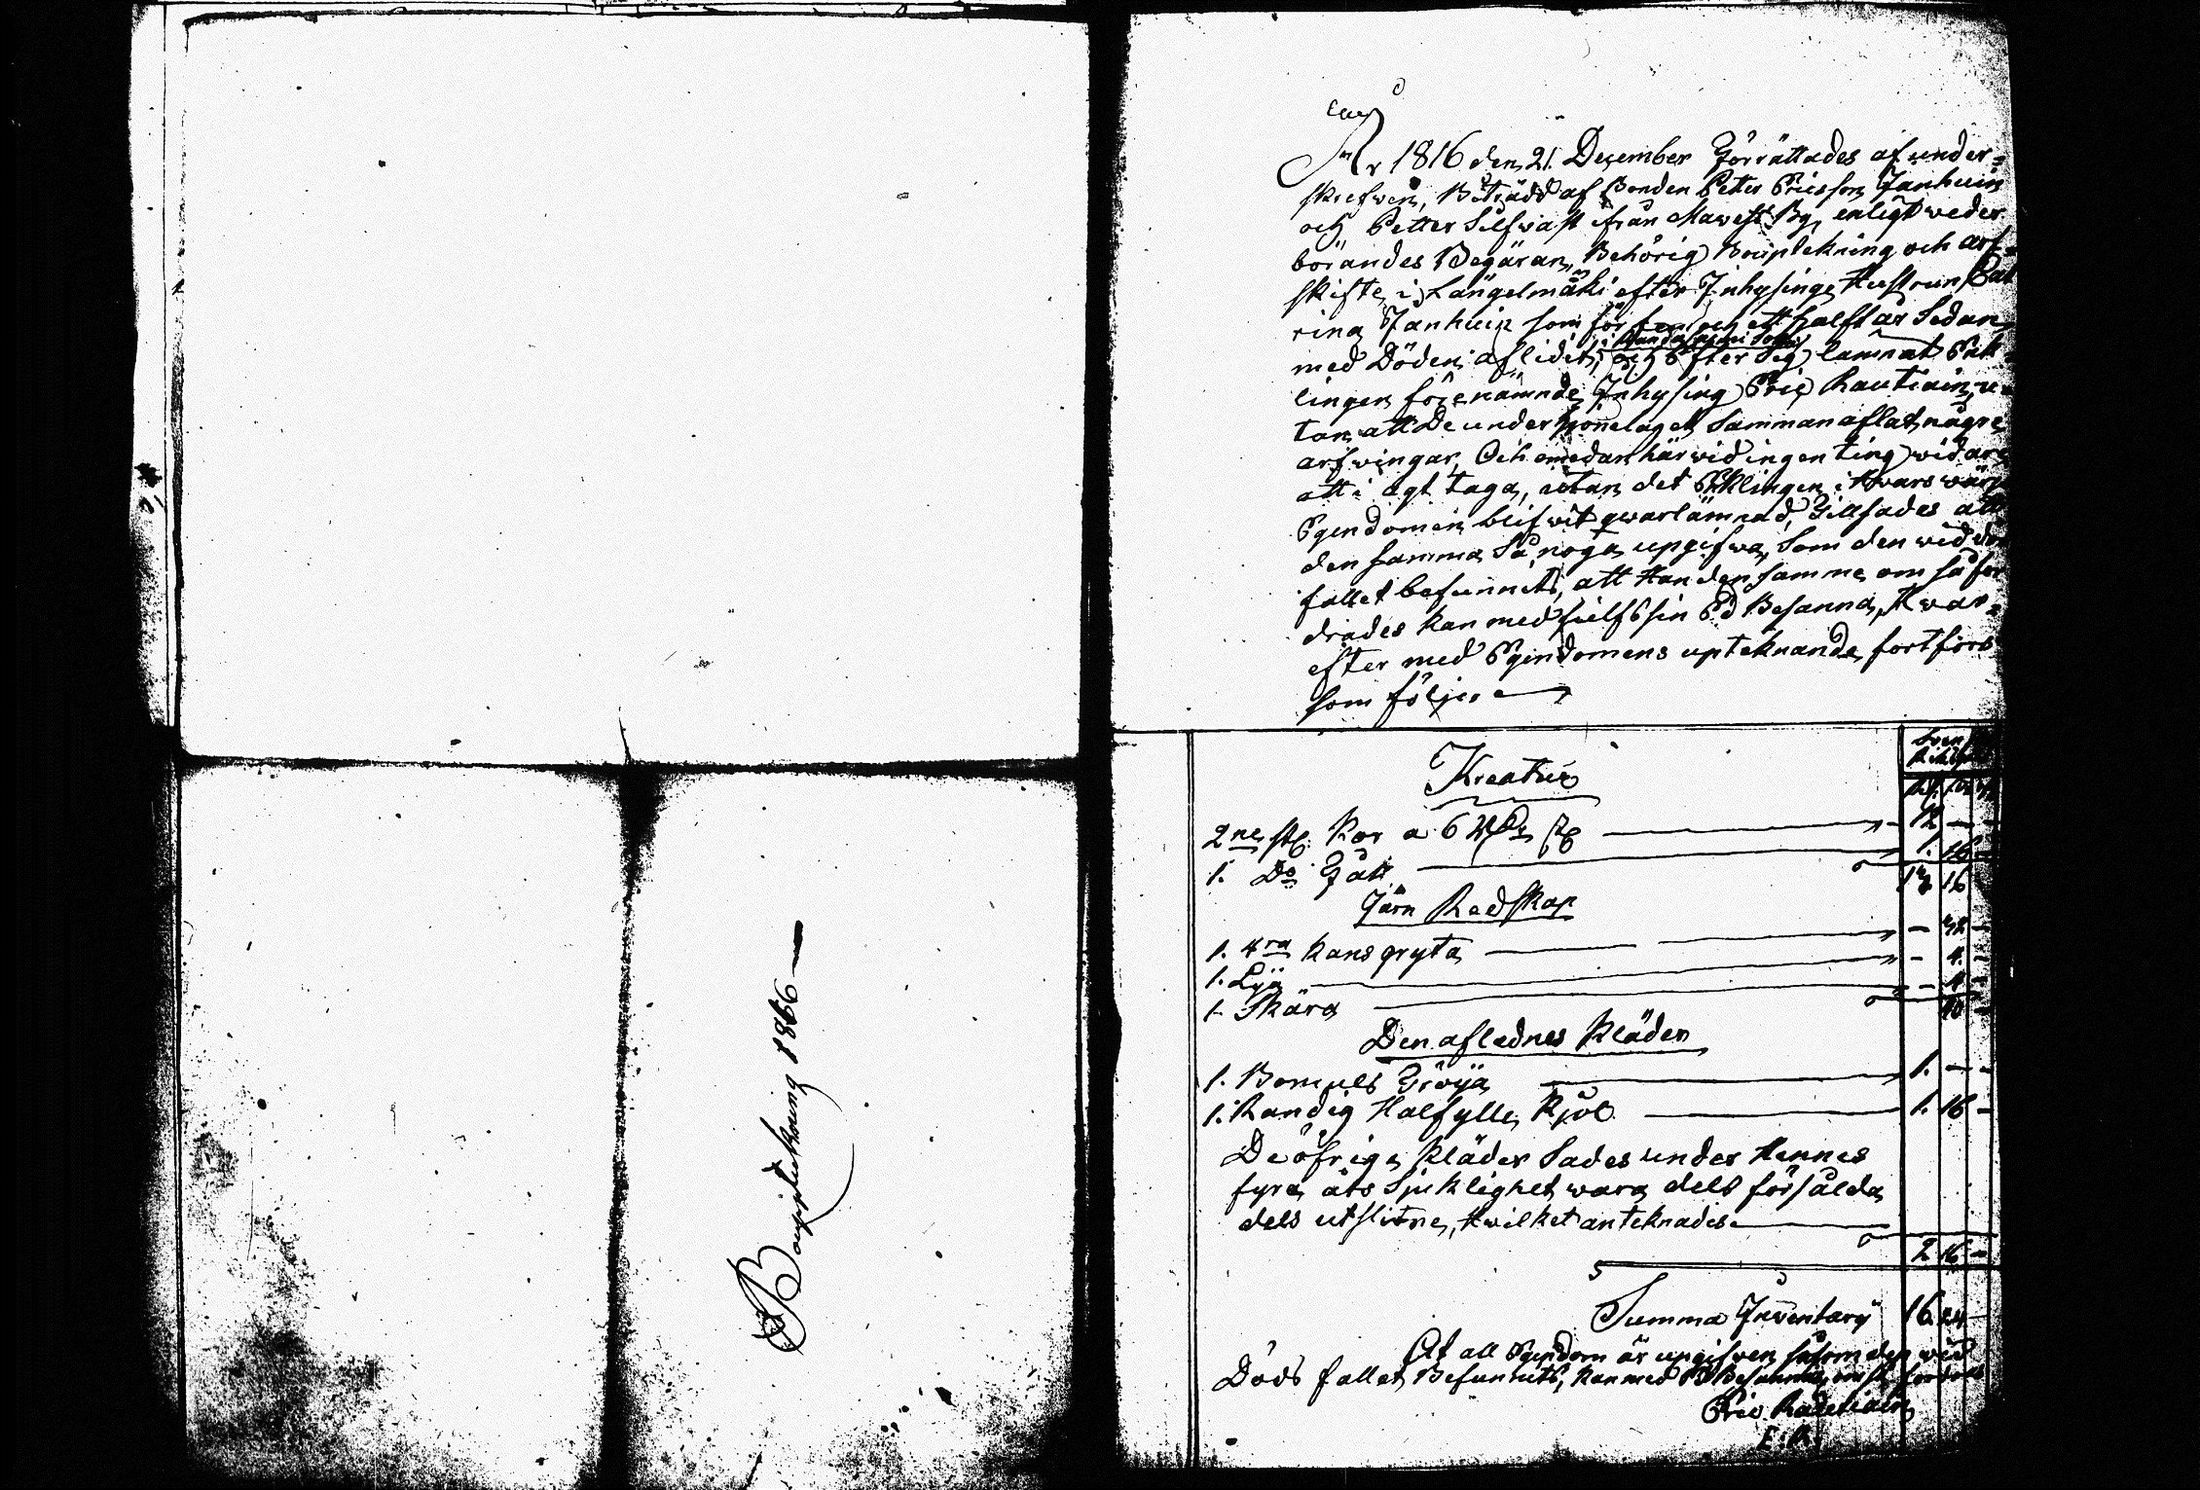 Bouptekning 1816
År 1816 den 21 December Förrättades af under=
skrefwen, Biträdd af Bonden Petter Ericsson Janhuin
och Petter Silfwast ifrån Mawesi By, enligt weder
börandes Begäran, Behörig Bouptekning och arf=
skifte, i Längelmäki efter Inhysings Hustrun Cat
rina Janhuin som för fem och ett halft år Sedan
med Döden aflidit, och Efter Sig lämnat Enk
lingen förenämnde Inhysing Eric Rautiain, u=
tan att De under hjonelaget Sammanaflat någre
arfwingar, Och emedan härwid ingen ting widare
att i agt taga, utan det Enklingen i Hwars wärjo
Egendomen blifwit qwarlämnad, Tillsades att
den samma Så noga upgifwa, Som den wid döds
fallet befunnits, att Han den samma om så for
drades kan med sielfs sin Ed Besanna, Hwar=
efter med Egendomens upteknande fortfors
som följer
Kreatur
2ne st. Kor a 6 Rd 12 - -
1. Do Gått 1. 16 -
13 16
Järn Redskap
1. 4ra Kans gryta - 32 -
1. Lÿa - 4. -
1. Skära - 4 -
40 -
Den aflednes Kläder
1. Bomuls Tröÿa 1. - -
1. Randig Halfylle Kjol 1. 16 -
De öfriga Kläder Sades under Hennes
fyra års Sjuklighet wara dels försålda
dels utslitne, Hwilket anteknades
2 16 -
Summa Inventary 16. 24
At all Egendom är upgifwen såsom den wid
Döds fallet Befunnits, kan med Ed Besannas om så fordras
Eric Rautiain
E. R.